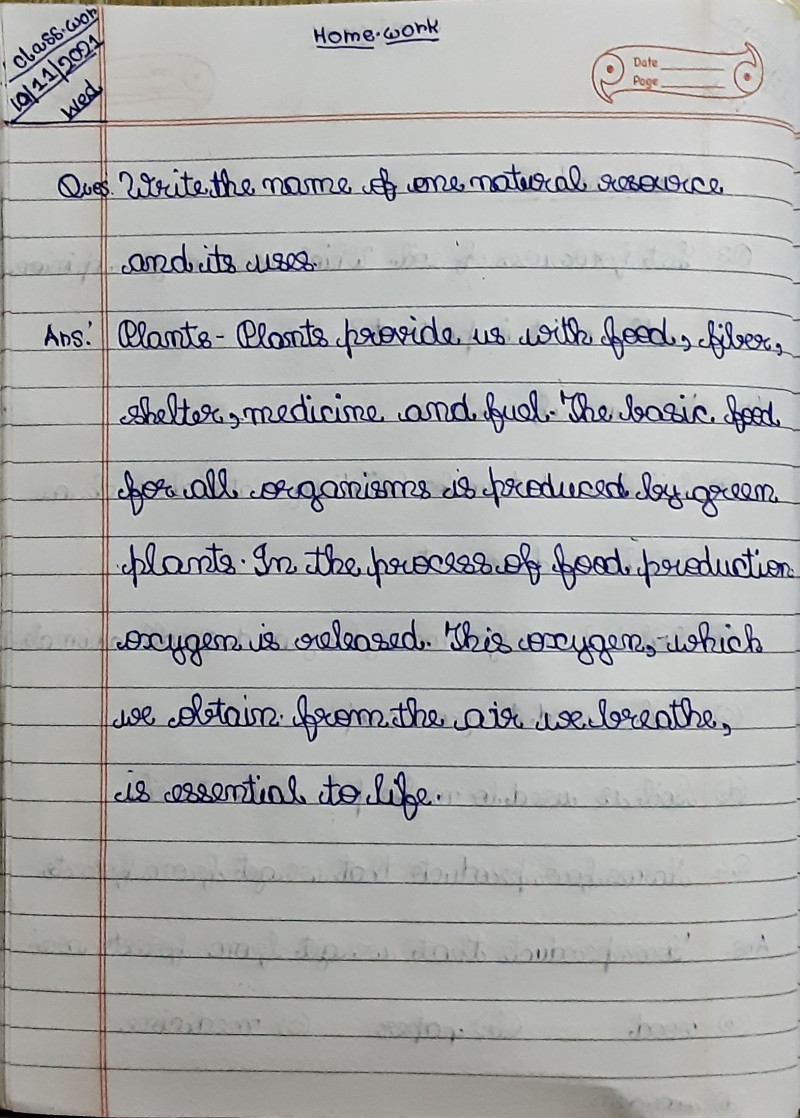 class.wor
10/11/2021
Wed
Home.work
Date
Page
Ques. Write the name of one natural resource
and its uses.
Ans: Plants - Plants provide us with food, fiber,
shelter, medicine and fuel. The basic food
for all organisms is produced by green
plants. In the process of food production
oxygen is released. This oxygen, which
we obtain from the air we breathe,
is essential to life.